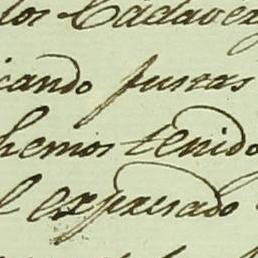 los Cadavez
cando justas
hemos tenido
el expresado